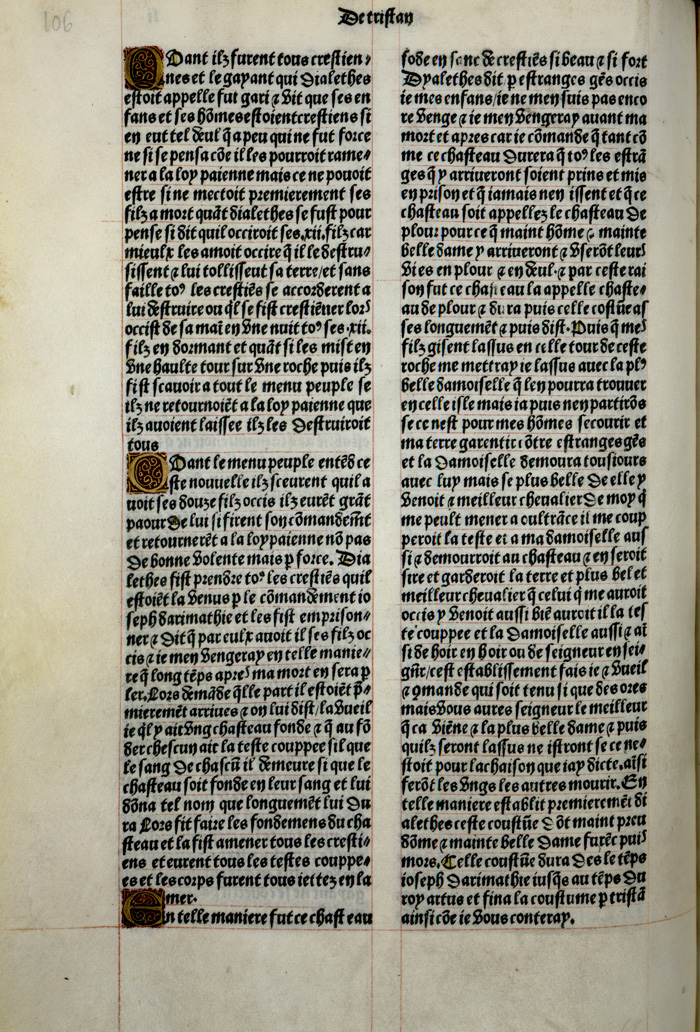 106
De tristan
Quant ilz furent tous crestien⸗
nes et le gayant qui Dialethes
estoit appelle fut gari ⁊ vit que ses en
fans et ses hõmes estoient crestiens si
en eut tel deul q̃ a peu qui ne fut force
ne si se pensa cõe il les pourroit rame⸗
ner a la loy paienne mais ce ne pouoit
estre si ne mectoit premierement ses
filz a mort quãt dialethes se fust pour
pense si dit quil occiroit ses.xii.filz car
mieulx les amoit occire q̃ il le destru⸗
sissent ⁊ lui tollissent sa terre/et sans
faille toꝰ les crestiẽs se accorderent a
lui destruire ou q̃l se fist crestiẽner lors
occist de sa maĩ en vne nuit toꝰ ses.xii.
filz en dormant et quãt si les mist en
vne haulte tour sur vne roche puis ilz
fist scauoir a tout le menu peuple se
ilz ne retournoiẽt a la loy paienne que
ilz auoient laissee ilz les destruiroit
tous
Quant le menu peuple entẽd ce
ste nouuelle ilz sceurent quil a
uoit ses douze filz occis ilz eurẽt grãt
paour de lui si firent son cõmandemẽt
et retournerẽt a la loy paienne nõ pas
de bonne volente mais ꝑ force. Dia
lethes fist prendre toꝰ les crestiẽs quil
estoiẽt la venus ꝑ le cõmandement io
seph darimathie et les fist emprison⸗
ner ⁊ dit q̃ par eulx auoit il ses filz oc
cis ⁊ ie men vengeray en telle manie⸗
re q̃ long tẽps apres ma mort en sera ꝑ
ler. Lors demãde q̃lle part il estoiẽt p̃⸗
mieremẽt arriues ⁊ on lui dist/la vueil
ie q̃l y ait vng chasteau fonde ⁊ q̃ au fõ
der chescun ait la teste couppee sil que
le sang de chascũ il demeure si que le
chasteau soit fonde en leur sang et lui
dõna tel nom que longuemẽt lui du
ra Lors fit faire les fondemens du cha
steau et la fist amener tous les cresti⸗
ens et eurent tous les testes couppe⸗
es et les corps furent tous iettez en la
mer.
En telle maniere fut ce chasteau
fode en sanc de crestiẽs si beau ⁊ si fort
Dyalethes dit ꝑ estranges gẽs occis
ie mes enfans/ie ne men suis pas enco
re venge ⁊ ie men vengeray auant ma
mort et apres car ie cõmande q̃ tant cõ
me ce chasteau durera q̃ toꝰ les estrã
ges q̃ y arriueront soient prins et mis
en prison et q̃ iamais nen issent et q̃ ce
chasteau soit appellez le chasteau de
plour pour ce q̃ maint hõme ⁊ mainte
belle dame y arriueront ⁊ vserõt leurs
vies en plour ⁊ en deul.⁊ par ceste rai
son fut ce chasteau la appelle chaste⸗
au de plour ⁊ dura puis celle costũe as
ses longuemẽt ⁊ puis dist. Puis q̃ mes
filz gisent lassus en celle tour de ceste
roche me mettray ie lassus auec la plꝰ
belle damoiselle q̃ len pourra trouuer
en celle isle mais ia puis nen partirõs
se ce nest pour mes hõmes secourir et
ma terre garentir cõtre estranges gẽs
et la damoiselle demoura tousiours
auec luy mais se plus belle de elle y
venoit ⁊ meilleur cheualier de moy q̃
me peult mener a oultrãce il me coup
peroit la teste et a ma damoiselle aus
si ⁊ demourroit au chasteau ⁊ en seroit
sire et garderoit la terre et plus bel et
meilleur cheualier q̃ celui q̃ me auroit
occis y venoit aussi biẽ auroit il la tes
te couppee et la damoiselle aussi ⁊ aĩ
si de hoir en hoir ou de seigneur en sei⸗
gñr/cest establissement fais ie ⁊ vueil
⁊ ꝯmande qui soit tenu si que des ores
mais vous aures seigneur le meilleur
q̃ ca viẽne ⁊ la plus belle dame ⁊ puis
quilz seront lassus ne istront se ce ne⸗
stoit pour lachaison que iay dicte.aĩsi
ferõt les vngs les autres mourir. En
telle maniere establit premieremẽt di
alethes ceste coustũe dõt maint preu
dõme ⁊ mainte belle dame furẽt puis
mors. Celle coustũe dura des le tẽps
ioseph darimathie iusq̃s au tẽps du
roy artus et fina la coustume ꝑ tristã
ainsi cõe ie vous conteray.